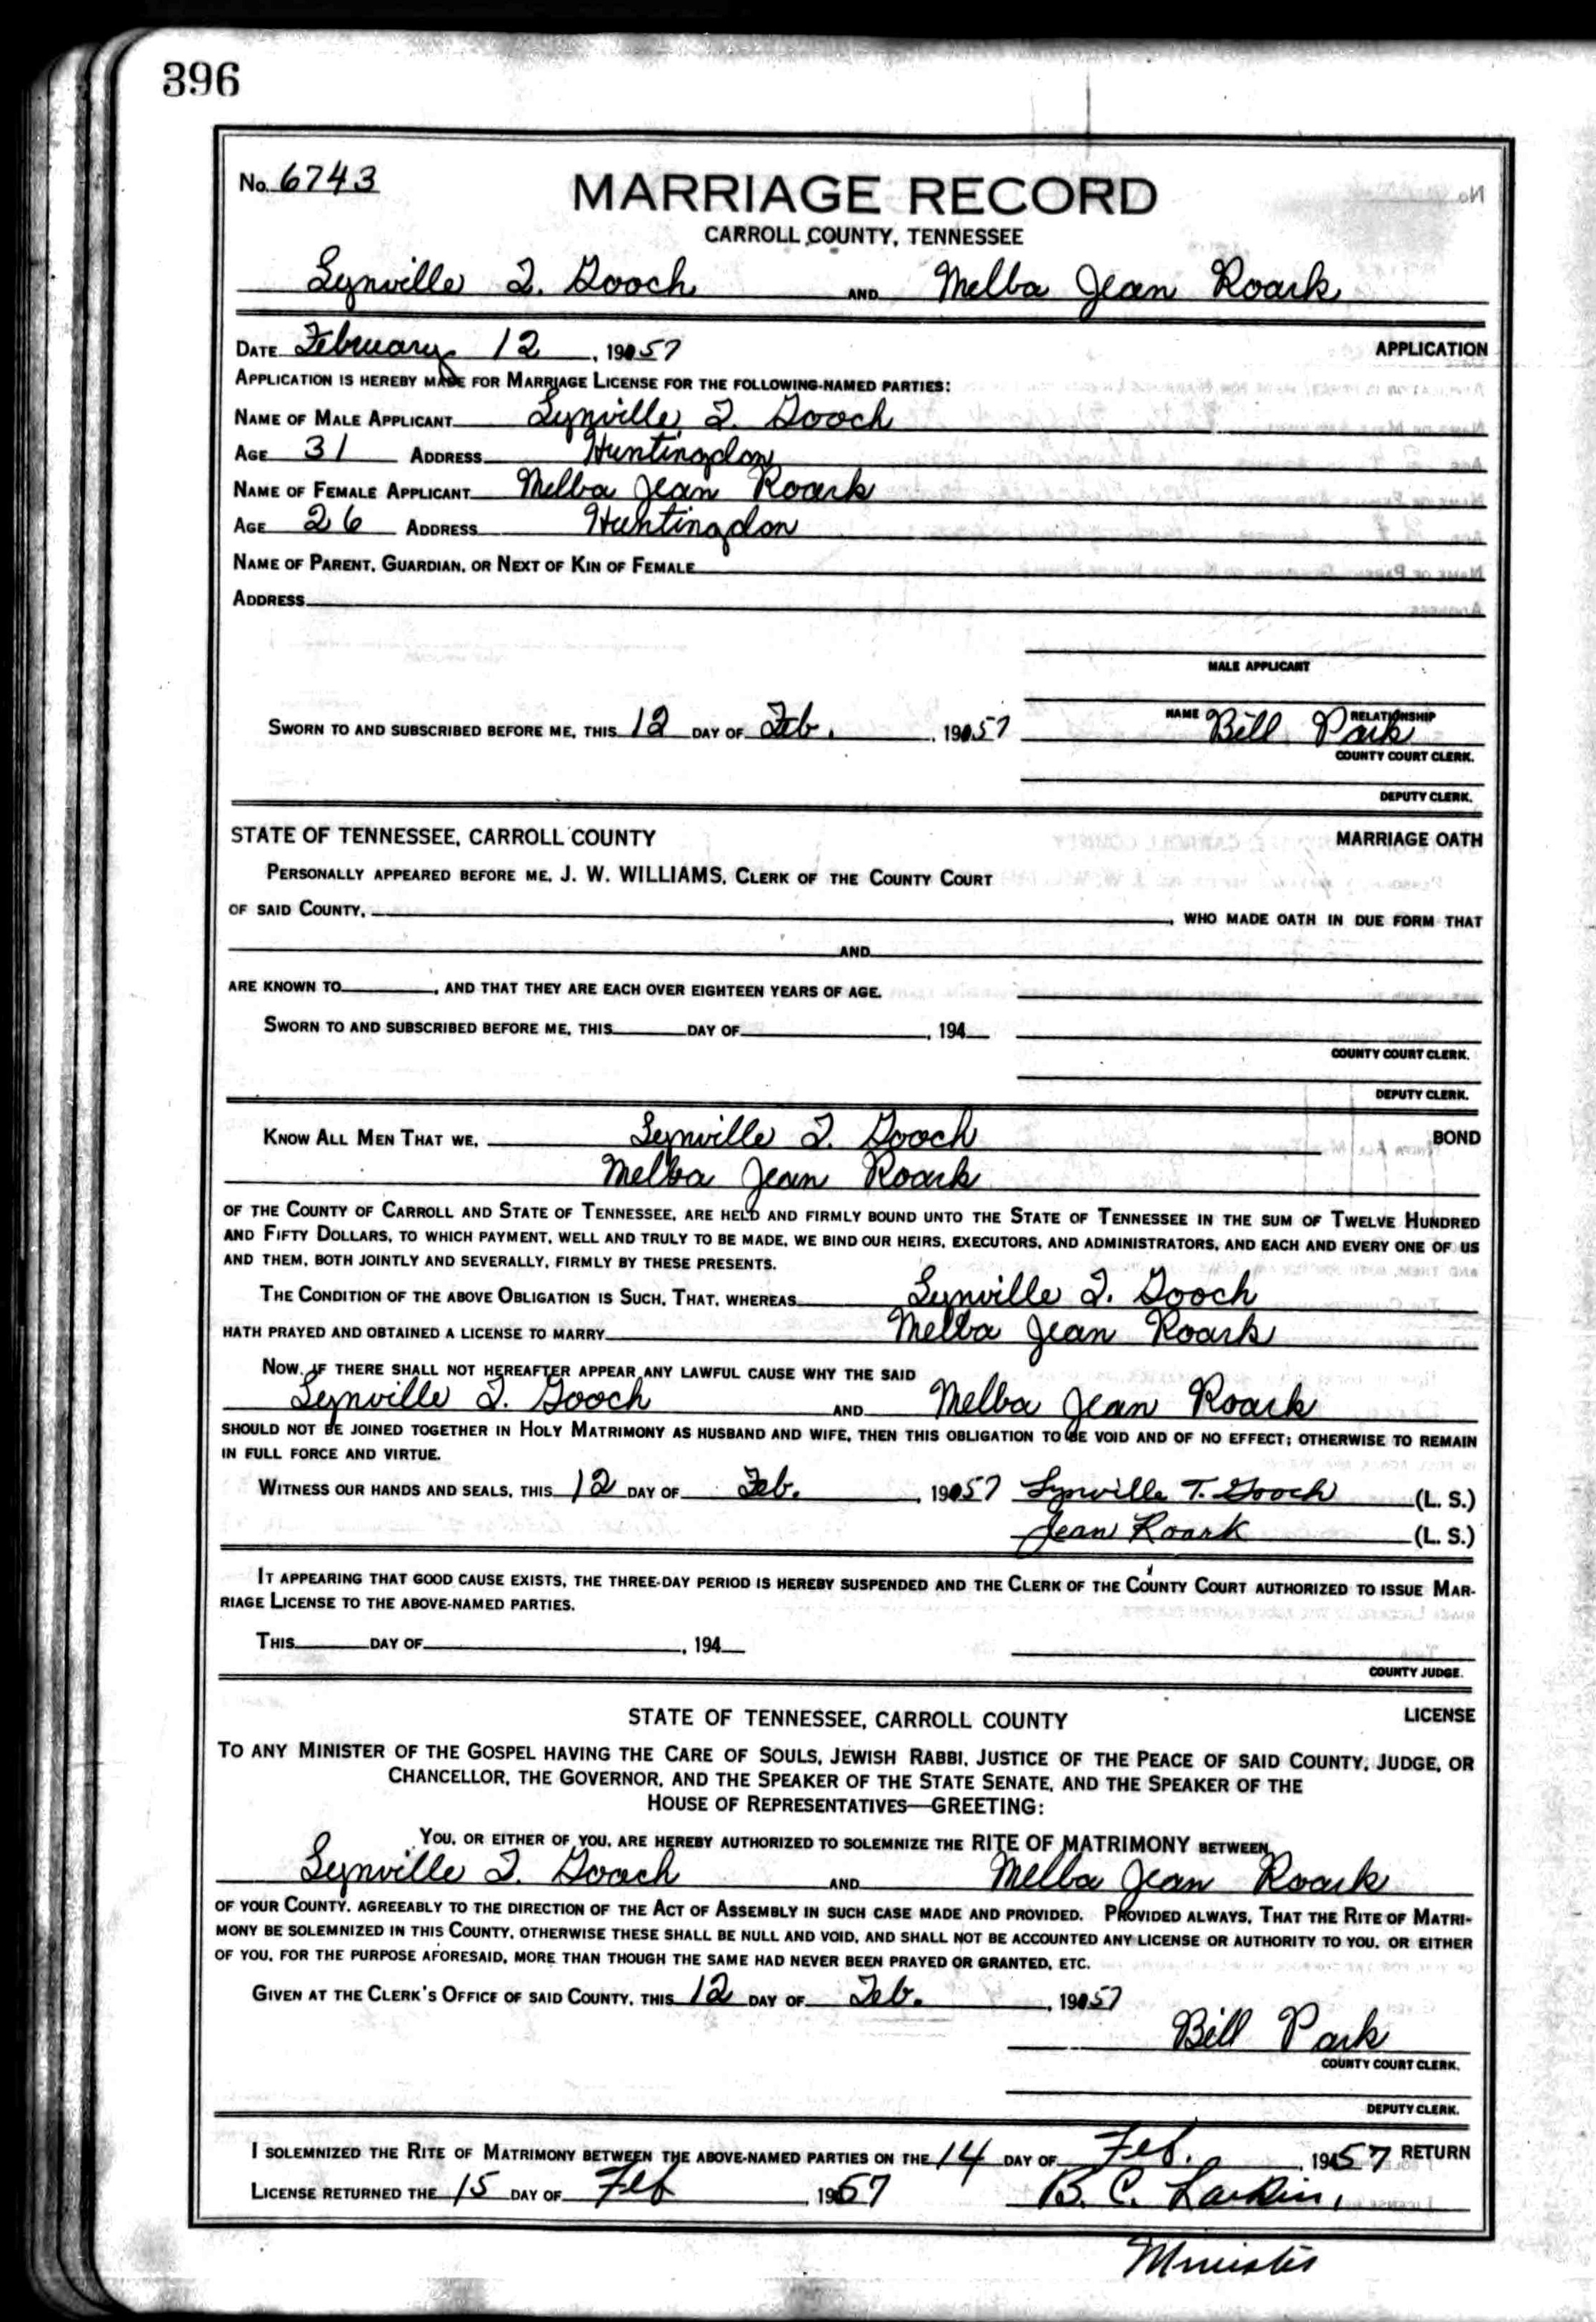 396
No. 6743
MARRIAGE RECORD
CARROLL COUNTY, TENNESSEE
Lynville T. Gooch AND Melba Jean Roark
DATE February 12, 1957 APPLICATION
APPLICATION IS HEREBY MADE FOR MARRIAGE LICENSE FOR THE FOLLOWING-NAMED PARTIES:
NAME OF MALE APPLICANT Lynville T. Gooch
AGE 31 ADDRESS Huntingdon
NAME OF FEMALE APPLICANT Melba Jean Roark
AGE 26 ADDRESS Huntingdon
NAME OF PARENT, GUARDIAN, OR NEXT OF KIN OF FEMALE
ADDRESS
MALE APPLICANT
NAME RELATIONSHIP
SWORN TO AND SUBSCRIBED BEFORE ME, THIS 12 DAY OF Feb., 1957 Bill Park
COUNTY COURT CLERK.
DEPUTY CLERK.
STATE OF TENNESSEE, CARROLL COUNTY MARRIAGE OATH
PERSONALLY APPEARED BEFORE ME, J. W. WILLIAMS, CLERK OF THE COUNTY COURT
OF SAID COUNTY, , WHO MADE OATH IN DUE FORM THAT
AND
ARE KNOWN TO , AND THAT THEY ARE EACH OVER EIGHTEEN YEARS OF AGE.
SWORN TO AND SUBSCRIBED BEFORE ME, THIS DAY OF , 194
COUNTY COURT CLERK.
DEPUTY CLERK.
KNOW ALL MEN THAT WE, Lynville T. Gooch BOND
Melba Jean Roark
OF THE COUNTY OF CARROLL AND STATE OF TENNESSEE, ARE HELD AND FIRMLY BOUND UNTO THE STATE OF TENNESSEE IN THE SUM OF TWELVE HUNDRED
AND FIFTY DOLLARS, TO WHICH PAYMENT, WELL AND TRULY TO BE MADE, WE BIND OUR HEIRS, EXECUTORS, AND ADMINISTRATORS, AND EACH AND EVERY ONE OF US
AND THEM, BOTH JOINTLY AND SEVERALLY, FIRMLY BY THESE PRESENTS.
THE CONDITION OF THE ABOVE OBLIGATION IS SUCH, THAT, WHEREAS Lynville T. Gooch
HATH PRAYED AND OBTAINED A LICENSE TO MARRY Melba Jean Roark
NOW, IF THERE SHALL NOT HEREAFTER APPEAR ANY LAWFUL CAUSE WHY THE SAID
Lynville T. Gooch AND Melba Jean Roark
SHOULD NOT BE JOINED TOGETHER IN HOLY MATRIMONY AS HUSBAND AND WIFE, THEN THIS OBLIGATION TO BE VOID AND OF NO EFFECT; OTHERWISE TO REMAIN
IN FULL FORCE AND VIRTUE.
WITNESS OUR HANDS AND SEALS, THIS 12 DAY OF Feb., 1957 Lynville T. Gooch (L. S.)
Jean Roark (L. S.)
IT APPEARING THAT GOOD CAUSE EXISTS, THE THREE-DAY PERIOD IS HEREBY SUSPENDED AND THE CLERK OF THE COUNTY COURT AUTHORIZED TO ISSUE MAR-
RIAGE LICENSE TO THE ABOVE-NAMED PARTIES.
THIS DAY OF , 194
COUNTY JUDGE.
STATE OF TENNESSEE, CARROLL COUNTY LICENSE
TO ANY MINISTER OF THE GOSPEL HAVING THE CARE OF SOULS, JEWISH RABBI, JUSTICE OF THE PEACE OF SAID COUNTY, JUDGE, OR
CHANCELLOR, THE GOVERNOR, AND THE SPEAKER OF THE STATE SENATE, AND THE SPEAKER OF THE
HOUSE OF REPRESENTATIVES—GREETING:
YOU, OR EITHER OF YOU, ARE HEREBY AUTHORIZED TO SOLEMNIZE THE RITE OF MATRIMONY BETWEEN
Lynville T. Gooch AND Melba Jean Roark
OF YOUR COUNTY, AGREEABLY TO THE DIRECTION OF THE ACT OF ASSEMBLY IN SUCH CASE MADE AND PROVIDED. PROVIDED ALWAYS, THAT THE RITE OF MATRI-
MONY BE SOLEMNIZED IN THIS COUNTY, OTHERWISE THESE SHALL BE NULL AND VOID, AND SHALL NOT BE ACCOUNTED ANY LICENSE OR AUTHORITY TO YOU, OR EITHER
OF YOU, FOR THE PURPOSE AFORESAID, MORE THAN THOUGH THE SAME HAD NEVER BEEN PRAYED OR GRANTED, ETC.
GIVEN AT THE CLERK'S OFFICE OF SAID COUNTY, THIS 12 DAY OF Feb., 1957
Bill Park
COUNTY COURT CLERK.
DEPUTY CLERK.
I SOLEMNIZED THE RITE OF MATRIMONY BETWEEN THE ABOVE-NAMED PARTIES ON THE 14 DAY OF Feb., 1957 RETURN
LICENSE RETURNED THE 15 DAY OF Feb, 1957 B. C. Larkin,
Minister